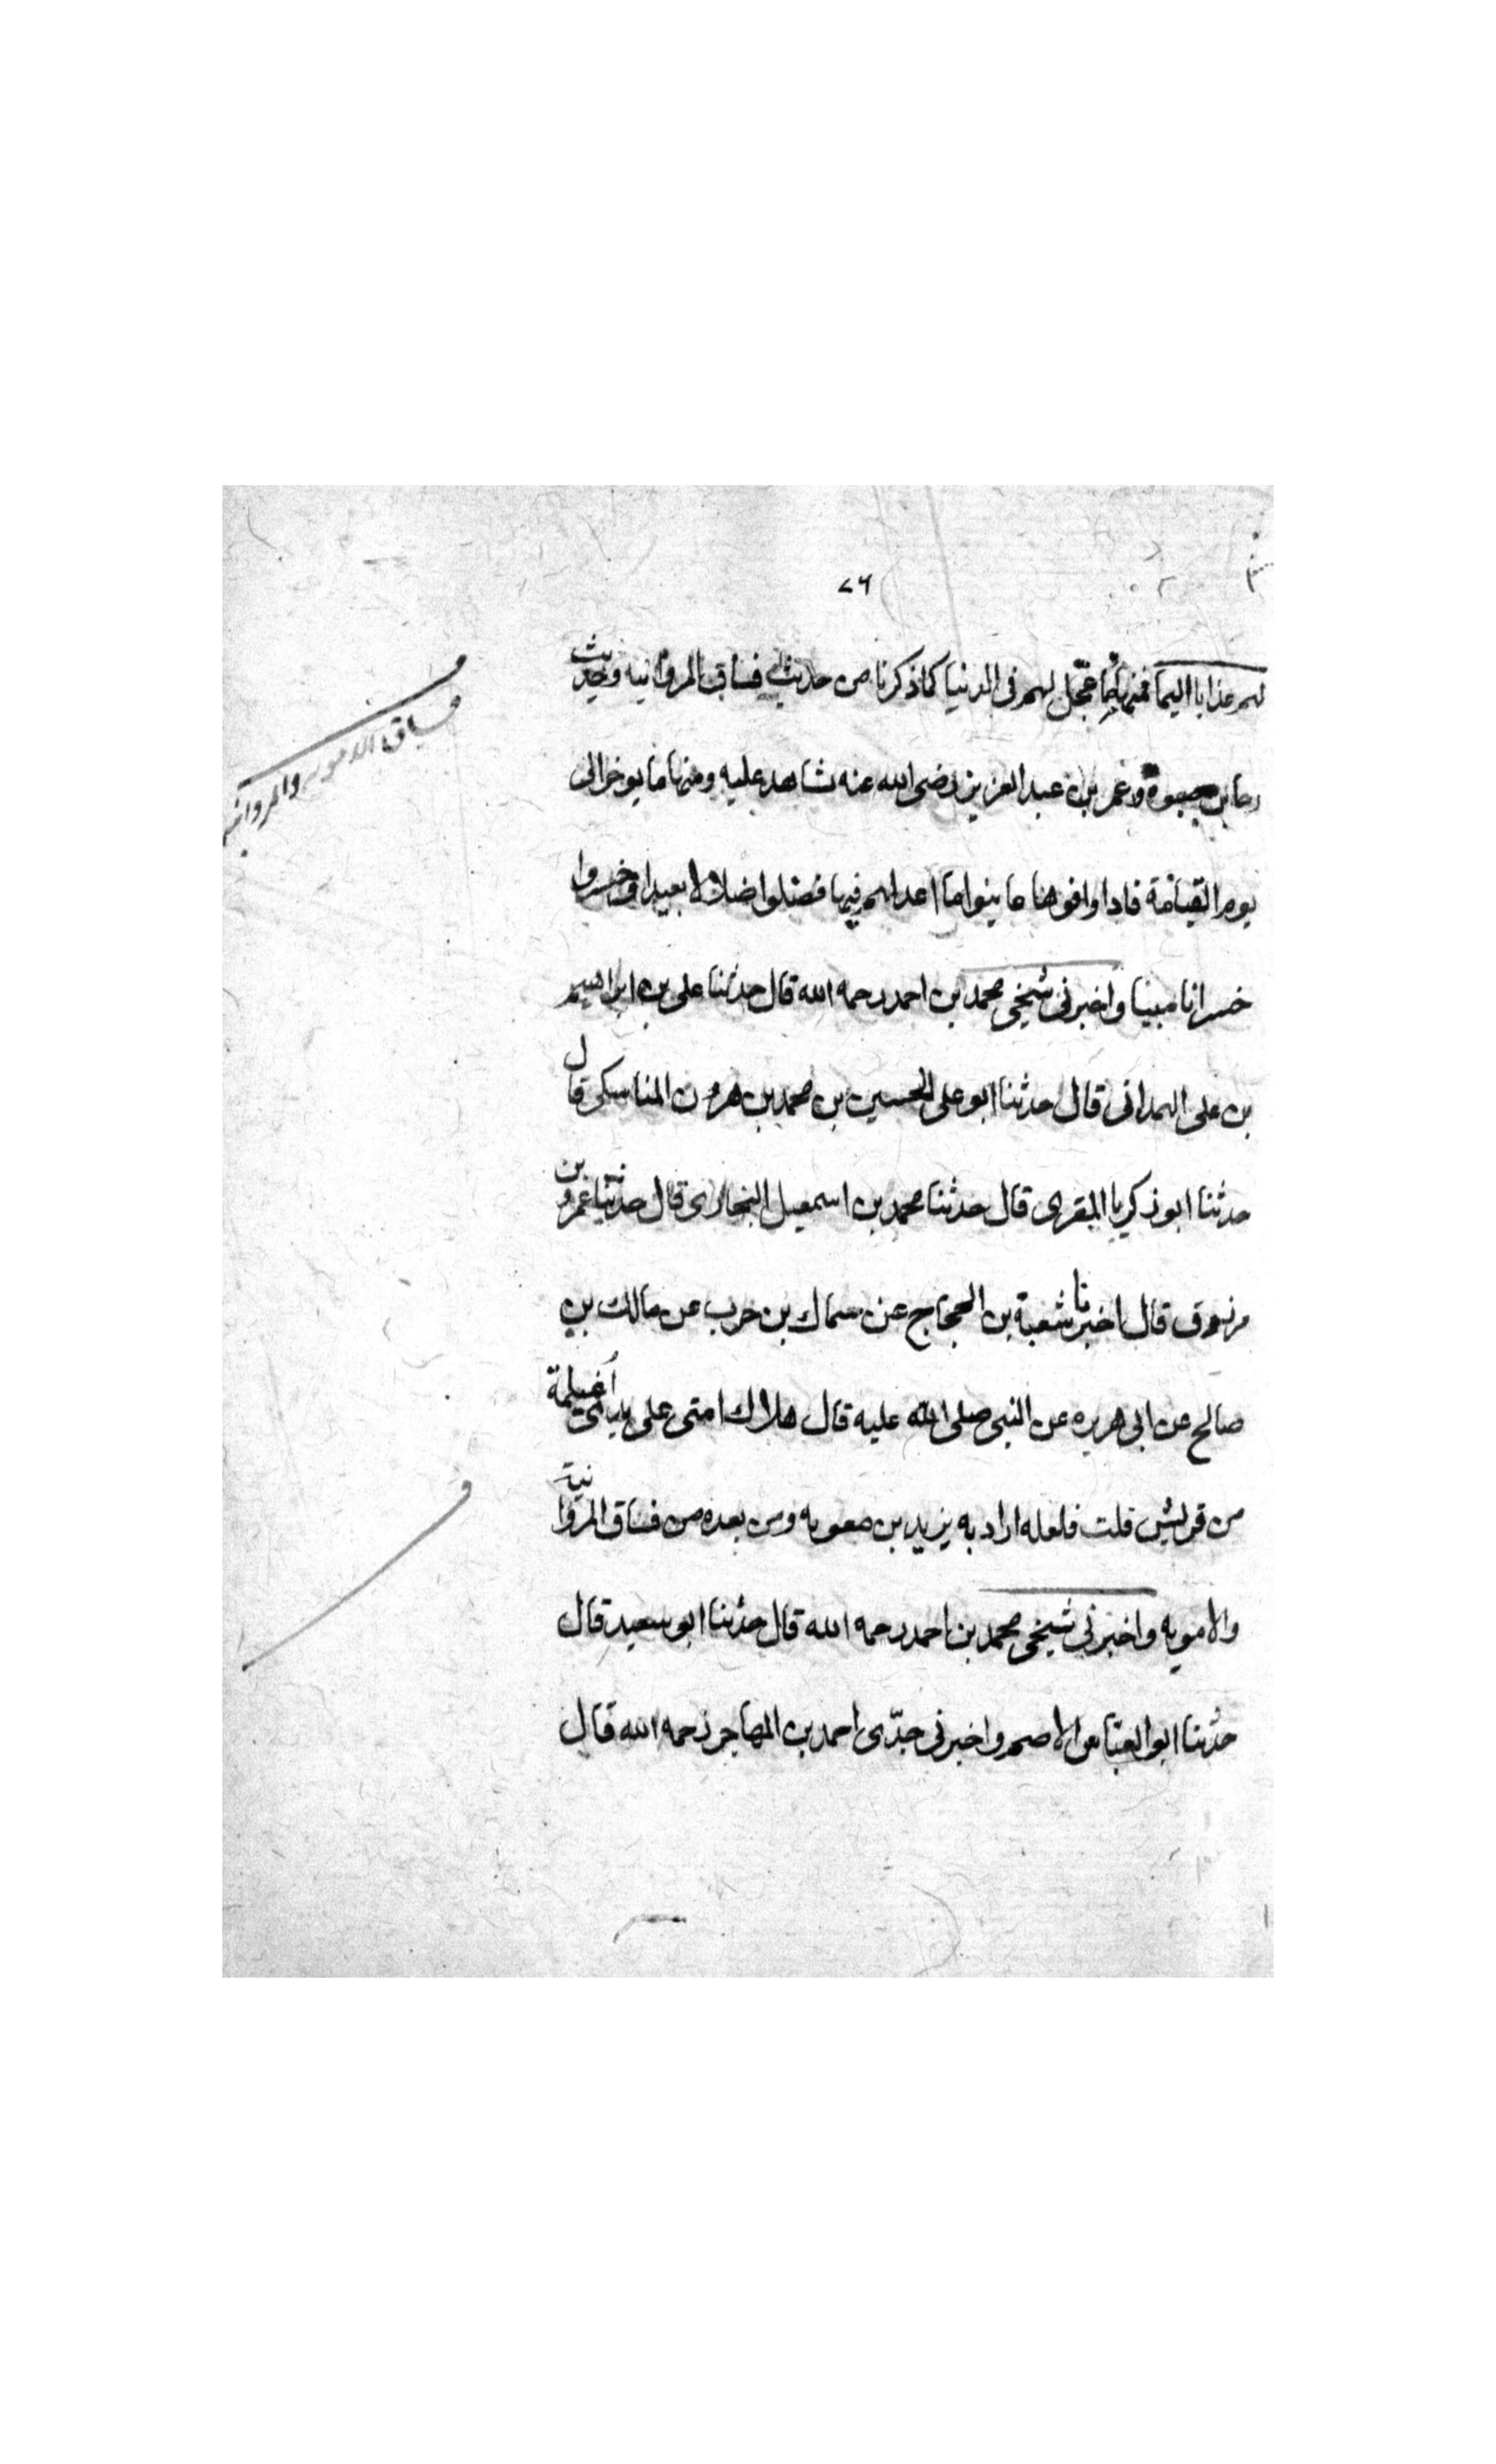 ٧٦
لهم عذابا اليما فمنها ما عجل لهم فى الدنيا كما ذكرنا من حديث فساق المروانيه وحديث
رجا بن حيوة وعمر بن عبد العزيز رضى الله عنه شاهد عليه ومنها ما يوخر الى
يوم القيامة فاذا وافوها عاينوا ما اعد لهم فيها فضلوا ضلالا بعيدا وخسروا
خسرانا مبينا واخبرنى شيخى محمد بن احمد رحمه الله قال حدثنا على بن ابراهيم
بن على الهمدانى قال حدثنا ابو على الحسين بن محمد بن هرون المناسكى قال
حدثنا ابو ذكريا المقرى قال حدثنا محمد بن اسمعيل البخارى قال حدثنا عمرو بن
مرزوق قال اخبرنا شعبة بن الحجاج عن سماك بن حرب عن مالك بن
صالح عن ابى هريره عن النبى صلى الله عليه قال هلاك امتى على يدى اغيلمة
من قريش قلت فلعله اراد به يزيد بن معويه ومن بعده من فساق المروانية
والامويه واخبرنى شيخى محمد بن احمد رحمه الله قال حدثنا ابو سعيد قال
حدثنا ابو العباس الاصم واخبرنى جدى احمد بن المهاجر رحمه الله قال
فساق الامويه والمروانيه